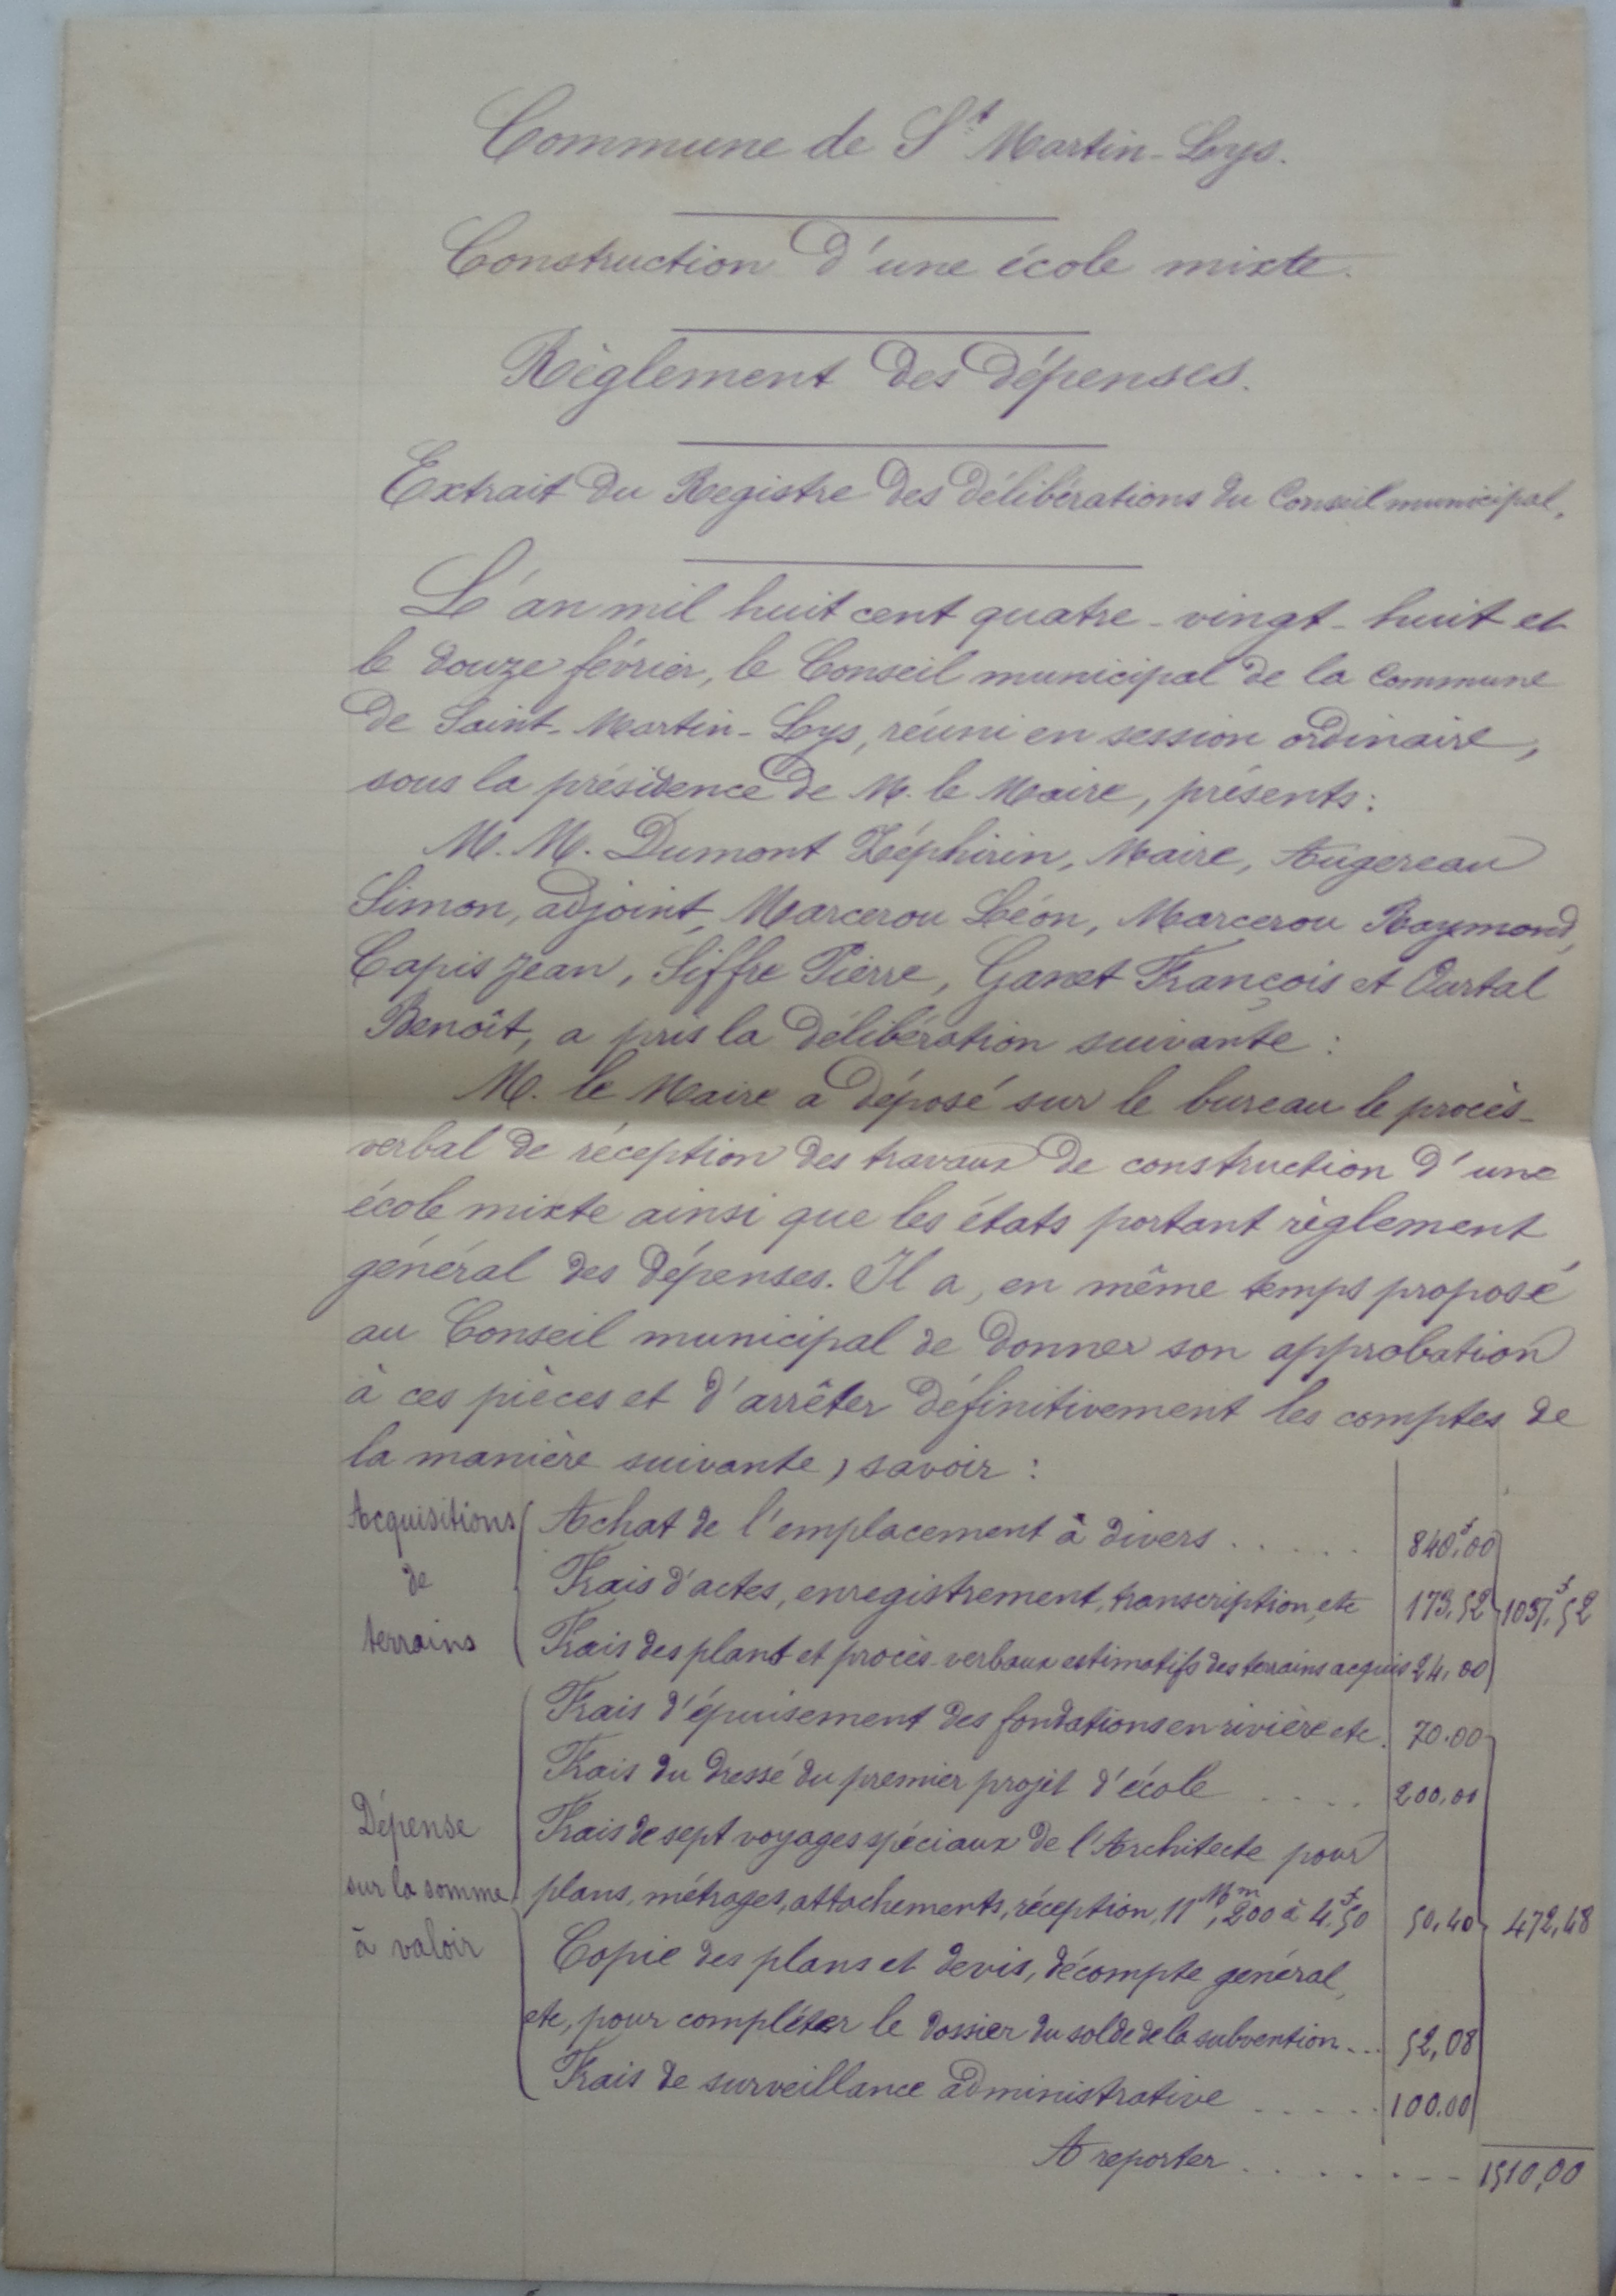 Commune de St Martin-Lys.
Construction d'une école mixte.
Règlement des dépenses.
Extrait du Registre des délibérations du Conseil municipal.
L'an mil huit cent quatre-vingt-huit et
le douze février, le Conseil municipal de la Commune
de Saint-Martin-Lys, réuni en session ordinaire,
sous la présidence de M. le Maire, présents:
M. M. Dumont Zéphirin, Maire, Augereau
Simon, adjoint, Marcerou Léon, Marcerou Raymond,
Capis Jean, Siffre Pierre, Ganet François et Ourtal
Benoît, a pris la délibération suivante:
M. le Maire a déposé sur le bureau le procès-
verbal de réception des travaux de construction d'une
école mixte ainsi que les états portant règlement
général des dépenses. Il a, en même temps proposé
au Conseil municipal de donner son approbation
à ces pièces et d'arrêter définitivement les comptes de
la manière suivante, savoir:
Acquisitions de terrains
Achat de l'emplacement à divers ..... 840f,00
Frais d'actes, enregistrement, transcription, etc 173,52 1037f,52
Frais des plans et procès-verbaux estimatifs des terrains acquis 24,00
Dépense sur la somme à valoir
Frais d'épuisement des fondations en rivière etc. 70.00
Frais du dressé du premier projet d'école .... 200,00
Frais de sept voyages spéciaux de l'Architecte pour
plans, métrages, attachements, réception, 11Mm,200 à 4f,50 50,40 472,48
Copie des plans et devis, décompte général,
etc, pour compléter le dossier du solde de la subvention... 52,08
Frais de surveillance administrative ..... 100.00
A reporter ........ 1510,00